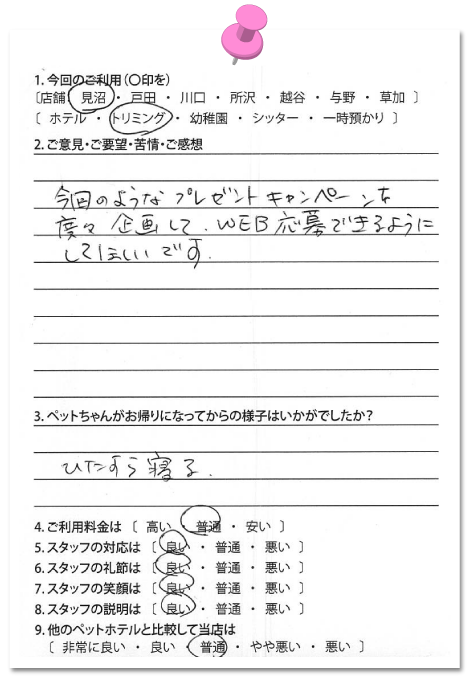 1. 今回のご利用(〇印を)
〔店舗 見沼 ・ 戸田 ・ 川口 ・ 所沢 ・ 越谷 ・ 与野 ・ 草加 〕
〔 ホテル ・ トリミング ・ 幼稚園 ・ シッター ・ 一時預かり 〕
2. ご意見・ご要望・苦情・ご感想
今回のような プレゼント キャンペーンを
度々 企画して、WEB応募できるように
してほしいです.
3. ペットちゃんがお帰りになってからの様子はいかがでしたか?
ひたすら寝る.
4. ご利用料金は 〔 高い ・ 普通 ・ 安い 〕
5. スタッフの対応は 〔 良い ・ 普通 ・ 悪い 〕
6. スタッフの礼節は 〔 良い ・ 普通 ・ 悪い 〕
7. スタッフの笑顔は 〔 良い ・ 普通 ・ 悪い 〕
8. スタッフの説明は 〔 良い ・ 普通 ・ 悪い 〕
9. 他のペットホテルと比較して当店は
〔 非常に良い ・ 良い ・ 普通 ・ やや悪い ・ 悪い 〕